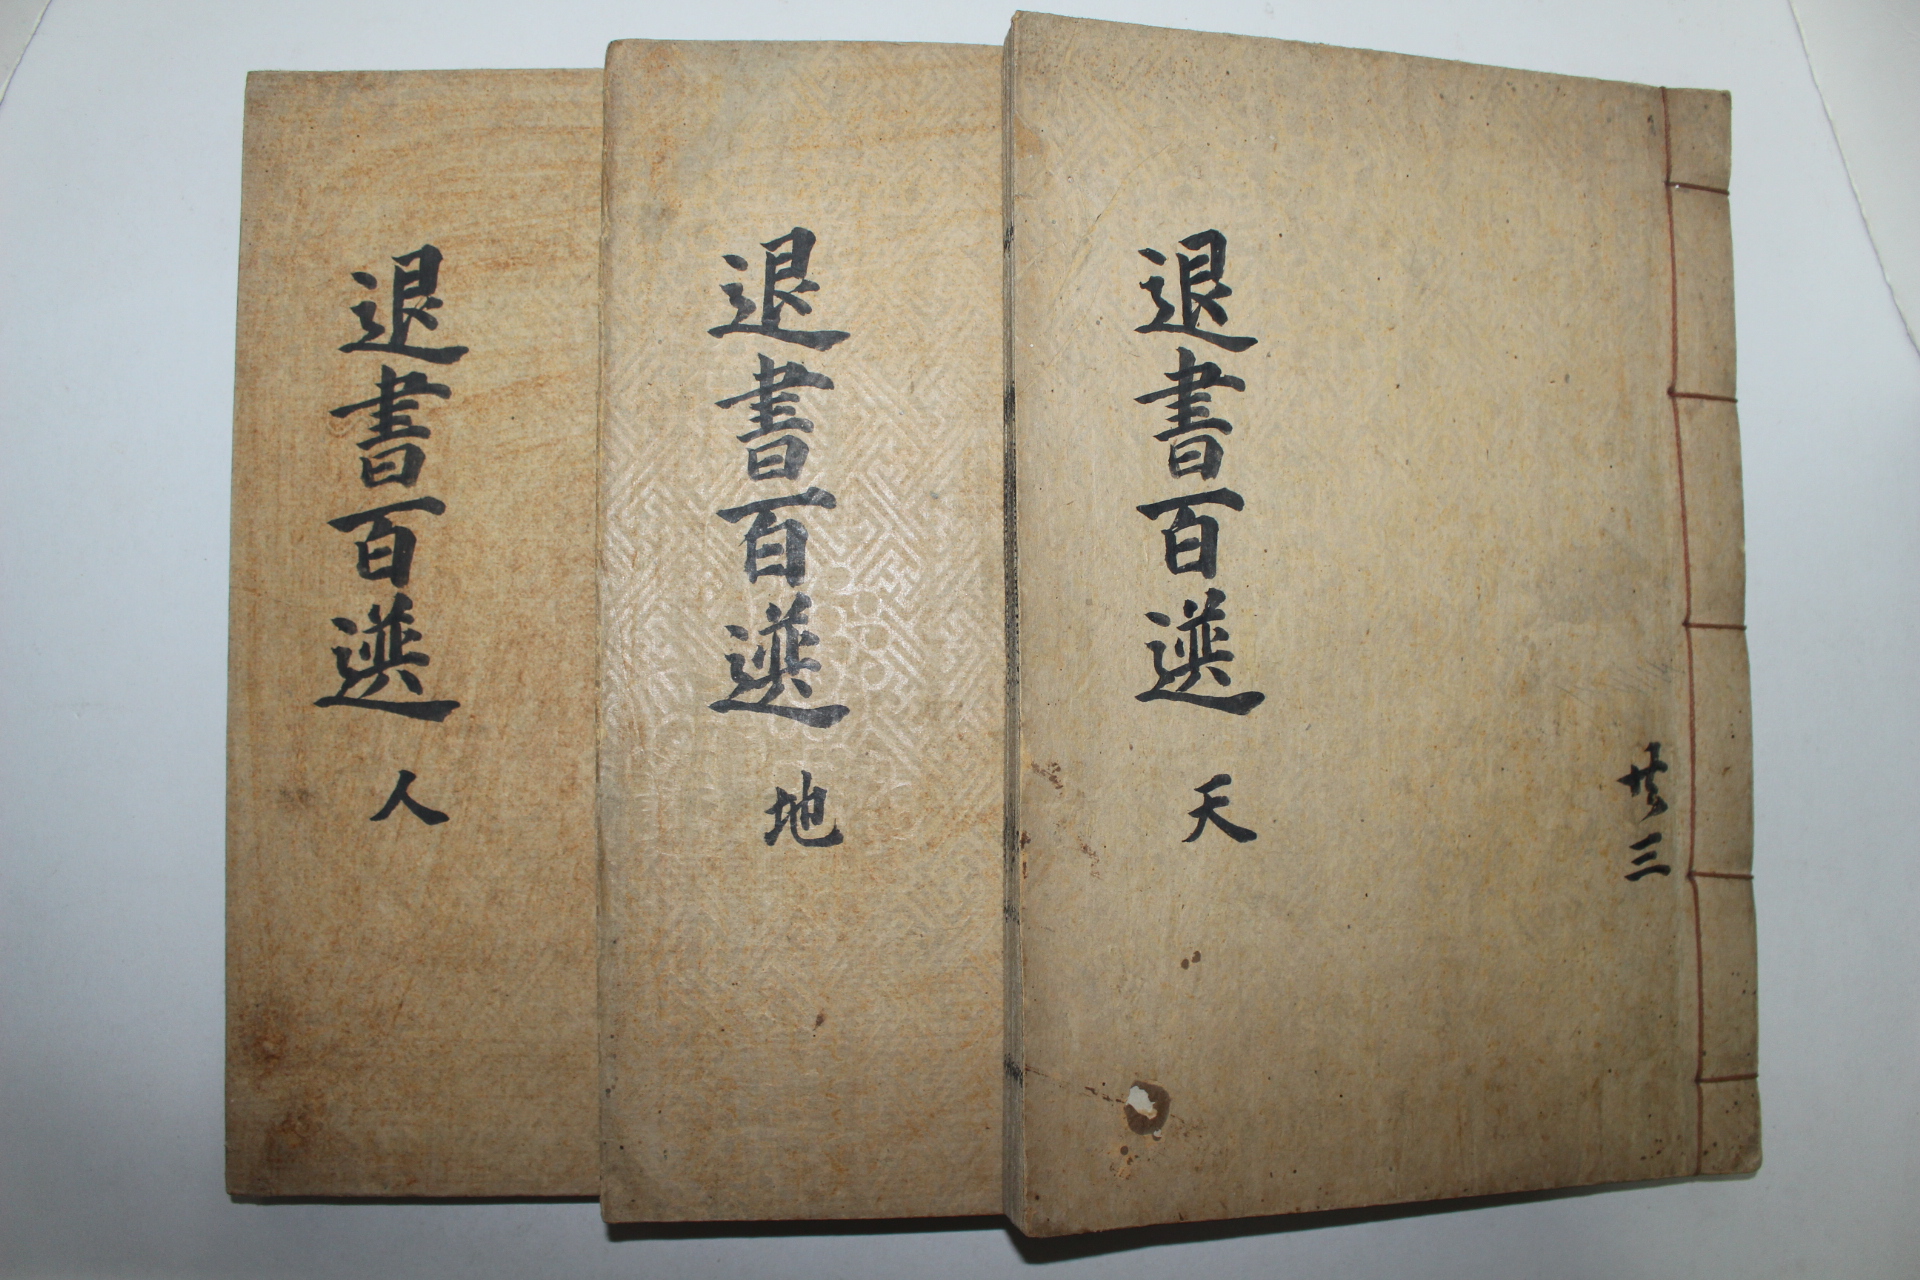 退書百選 天
共三
退書百選 地
退書百選 人